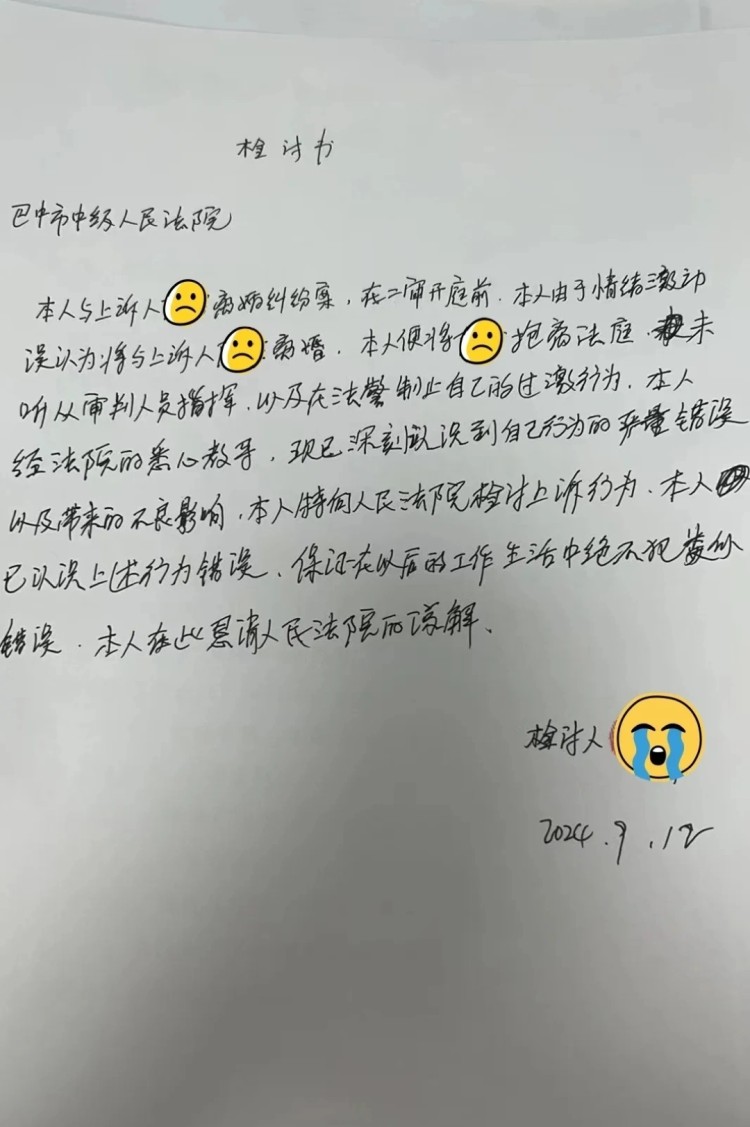 检讨书
巴中市中级人民法院
本人与上诉人 离婚纠纷案，在二审开庭前．本人由于情绪激动
误认为将与上诉人 离婚．本人便将 抱离法庭．未
听从审判人员指挥．以及在法警制止自己的过激行为．本人
经法院的悉心教导，现已深刻认识到自己行为的严重错误
以及带来的不良影响，本人特向人民法院检讨上诉行为．本人
已认识上述行为错误、保证在以后的工作生活中绝不犯类似
错误．本人在此恳请人民法院的谅解、
检讨人
2024.9.12